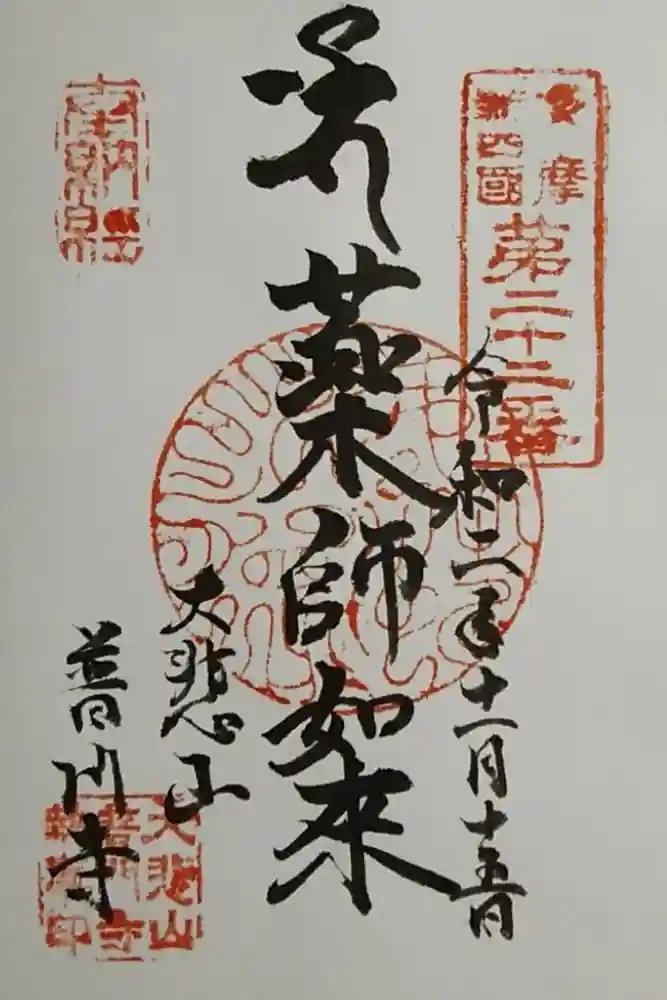 多摩
新四國
第二十二番
令和二年十一月十五日
薬師如來
大悲山
普門寺
奉納經
大悲山
普門寺